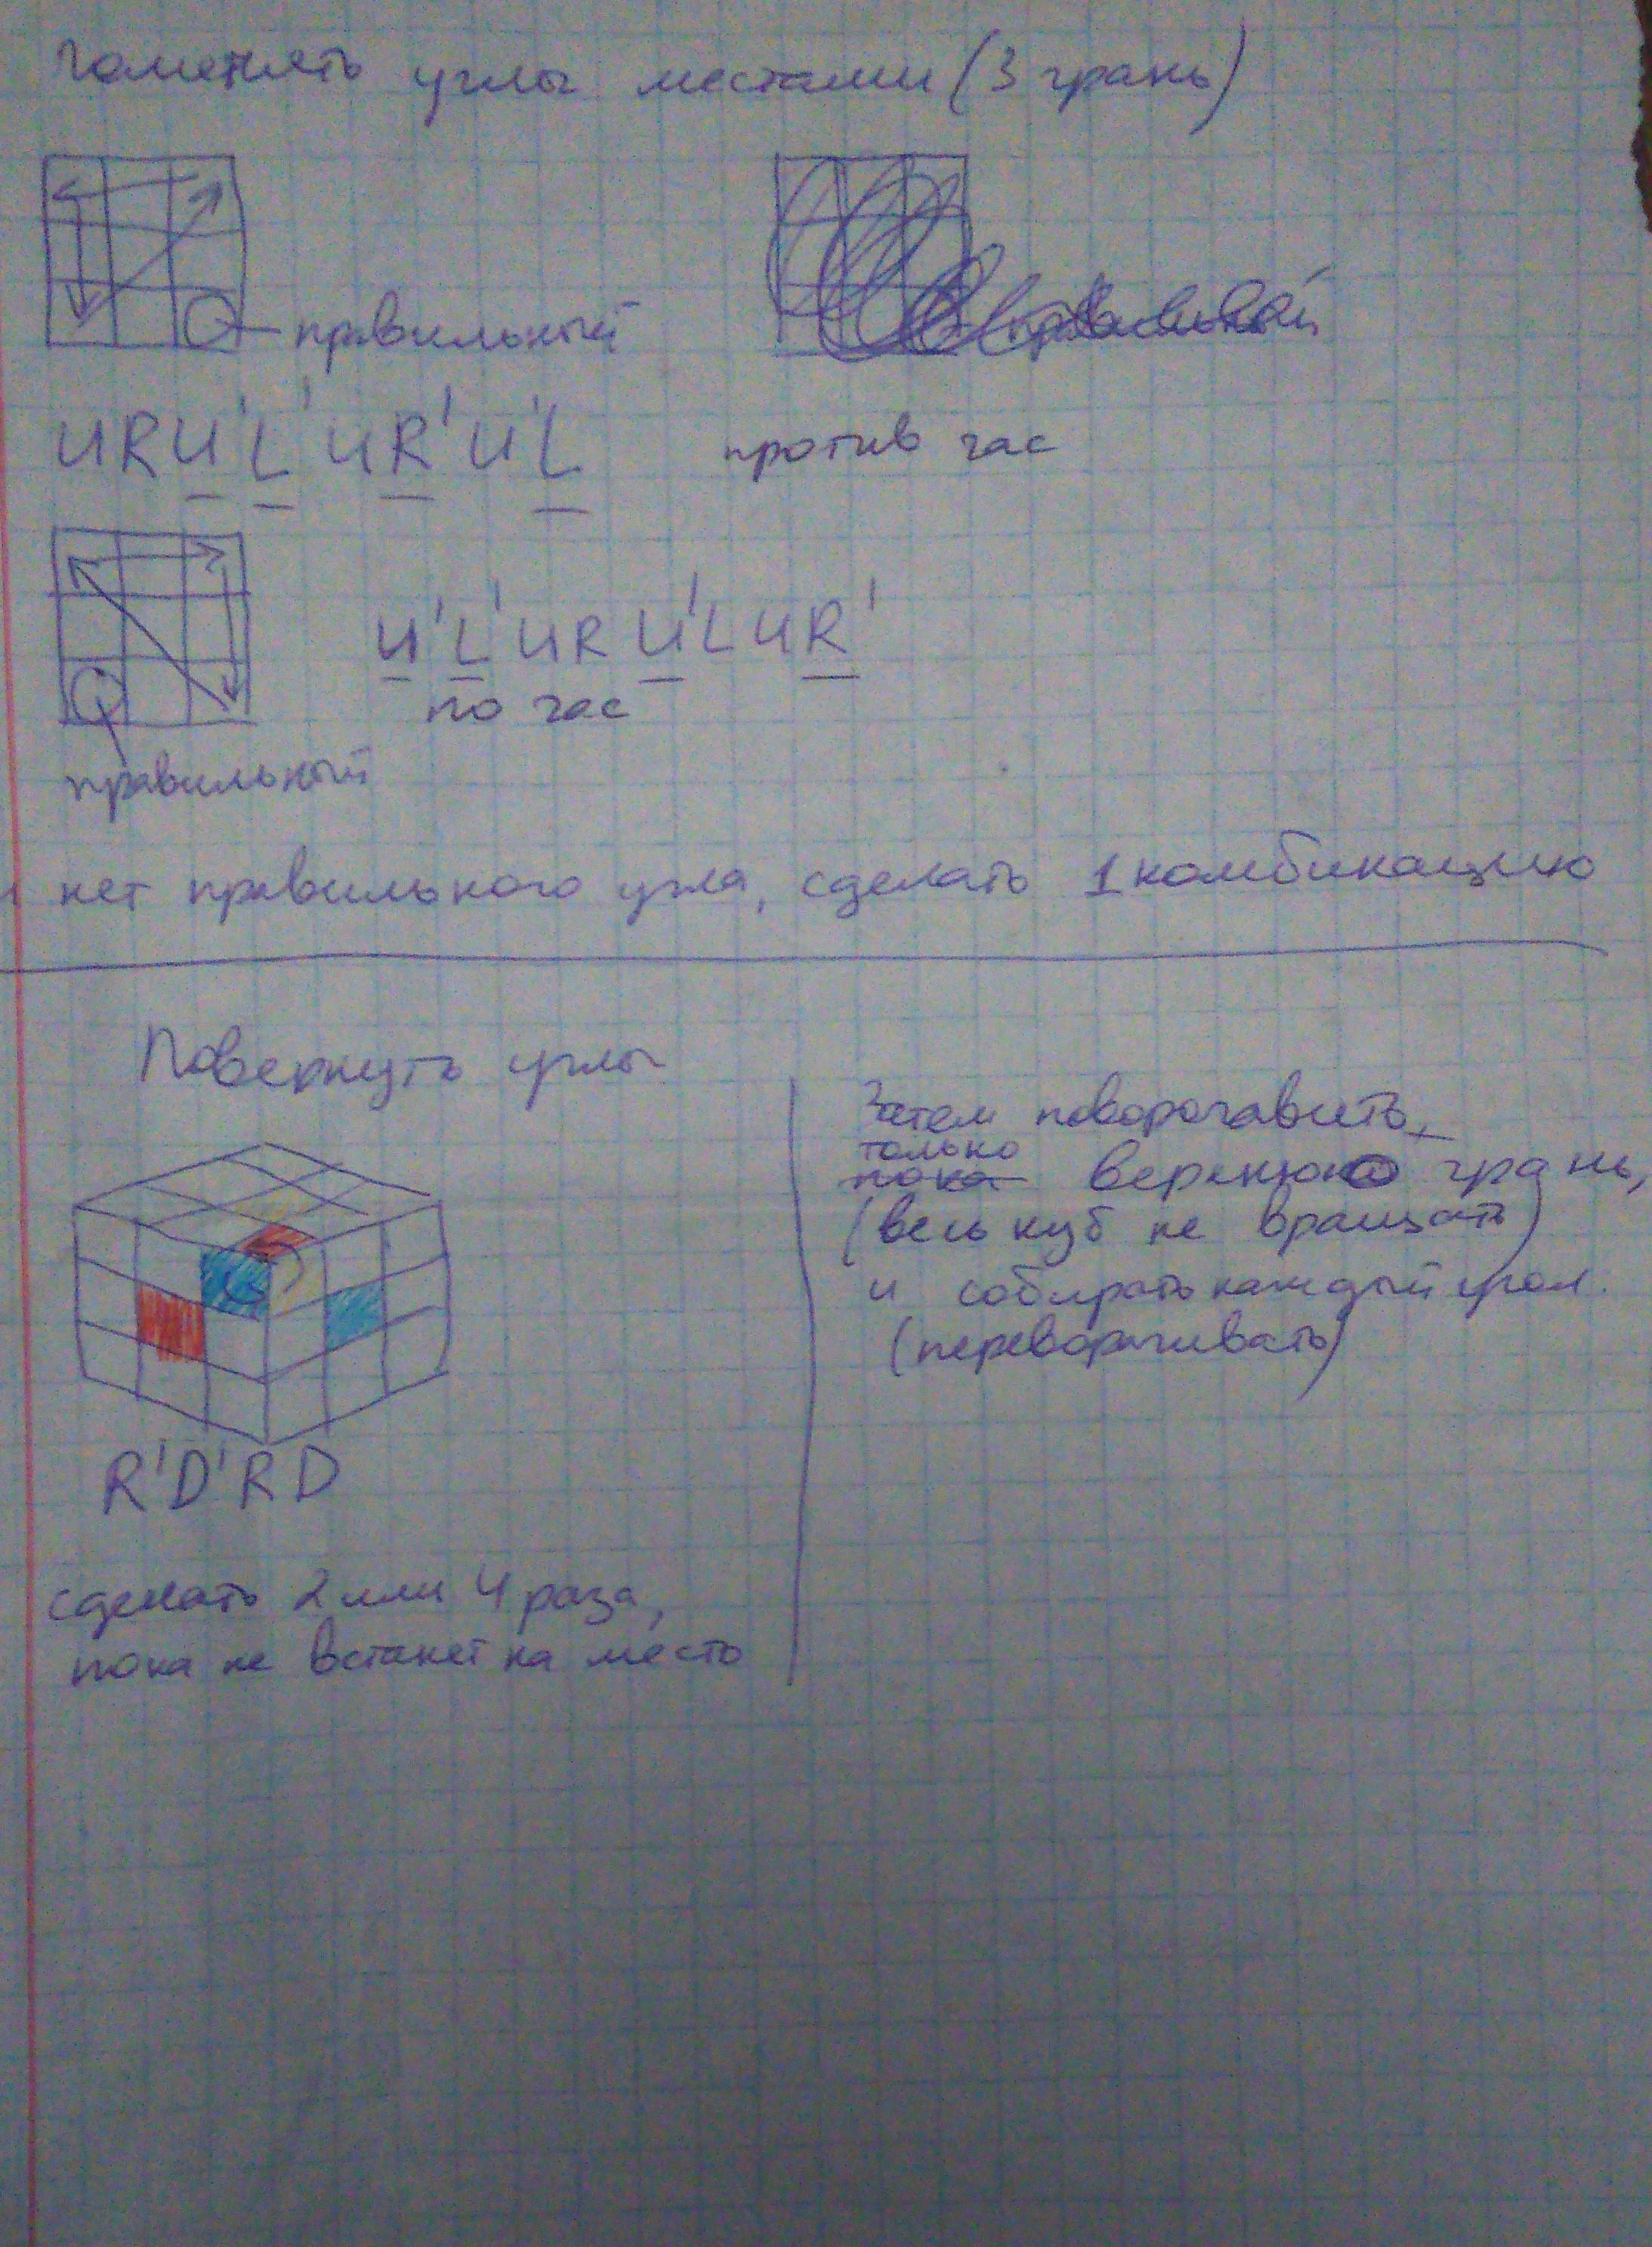 Поменять углы местами (3 грань)
правильный
URU'L'UR'U'L
против час
U'L'URU'LUR'
по час
правильный
нет правильного угла, сделать 1 комбинацию
Повернуть углы
R'D'RD
сделать 2 или 4 раза,
пока не встанет на место
Затем поворачавить
только
пока верхнюю грань,
(весь куб не вращать)
и собирать каждый угол.
(переворачивать)